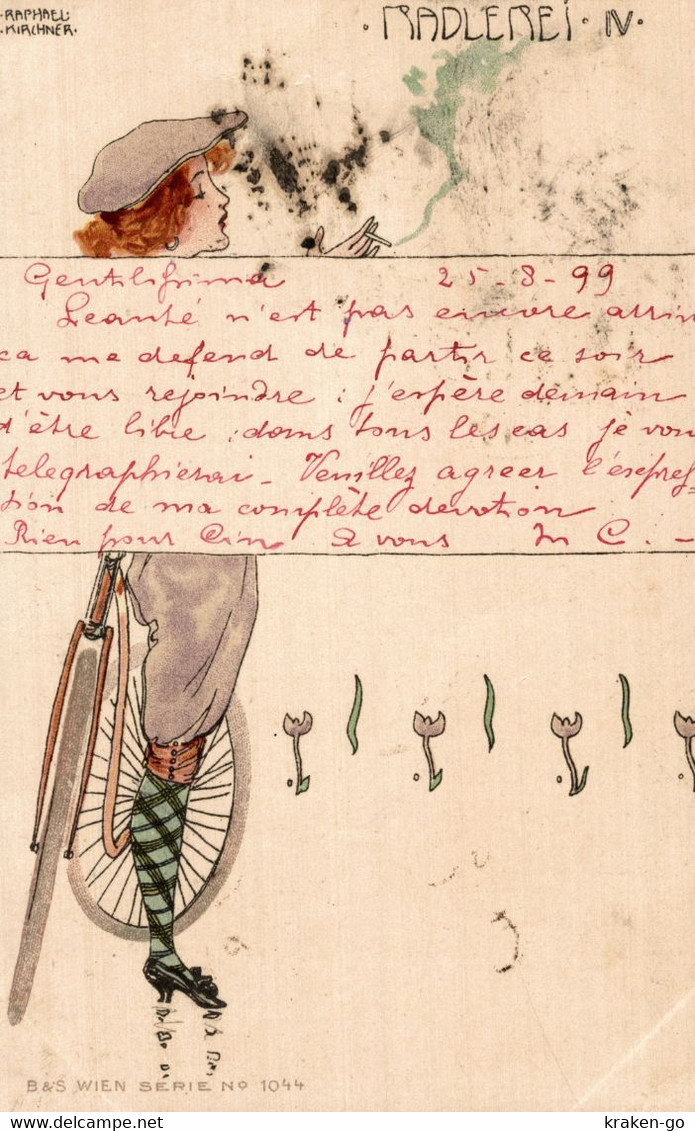 ·RAPHAEL
·KIRCHNER·
·RADLEREI· IV·
Gentilissima 25-8-99
n'est pas encore
ça me defend de partir ce soir
et vous rejoindre : j'espère demain
d'être libre ; dans tous les cas je vou
telegraphierai - Veuillez agreer l'expres-
sion de ma complète devotion
Rien pour à vous C. -
B&S WIEN SERIE No 1044
kraken-go